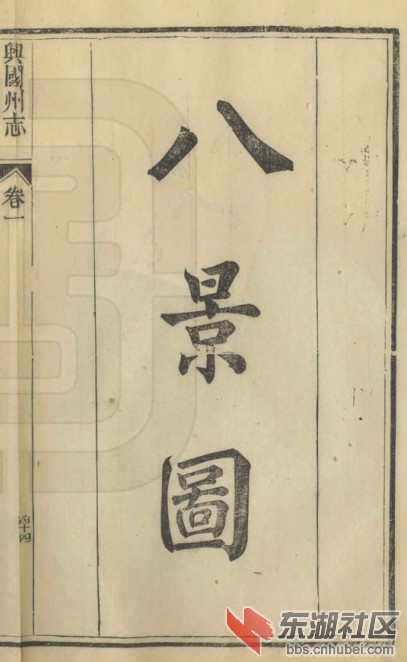 八景圖
興國州志
卷一
四十四
东湖社区
bbs.cnhubei.com